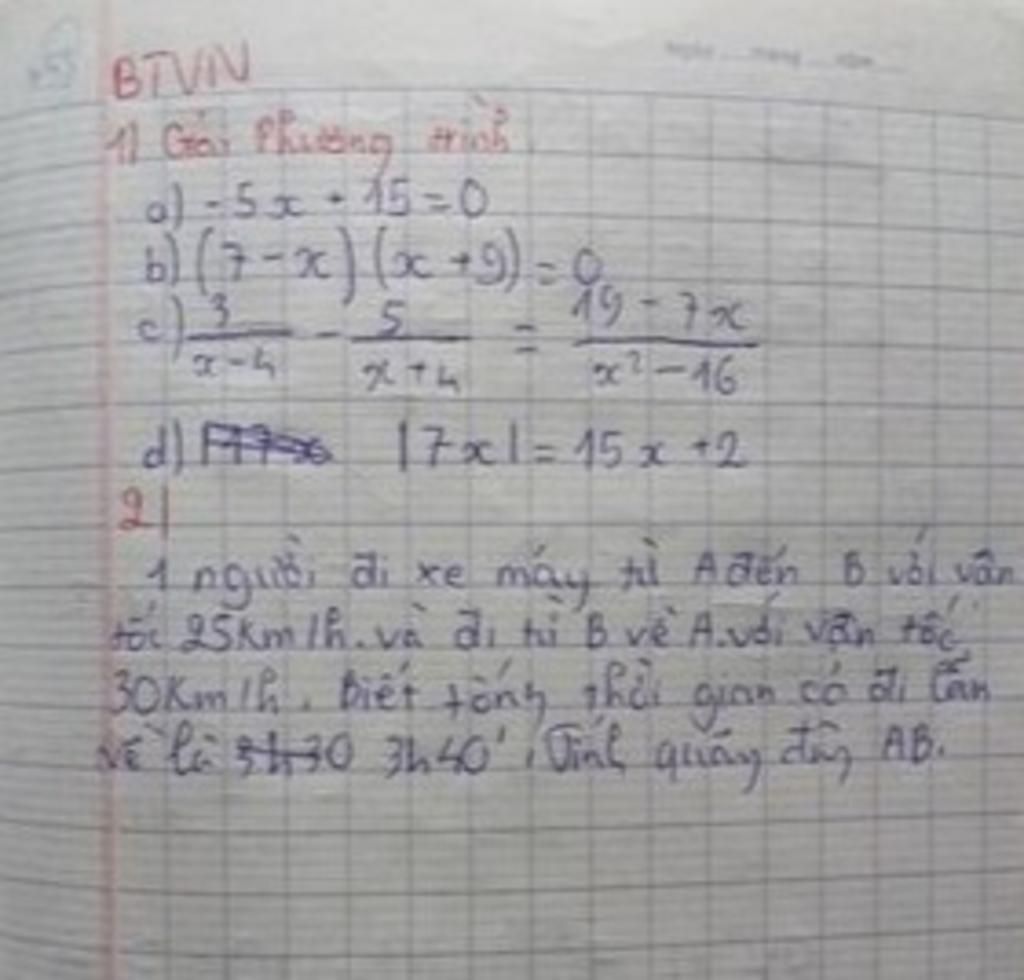 BTVN
1) Giải Phương trình
a) -5x + 15 = 0
b) (7 - x) (x + 9) = 0
c) 3/(x - 4) - 5/(x + 4) = (19 - 7x)/(x² - 16)
d) |7x| = 15x + 2
2)
1 người đi xe máy từ A đến B với vận
tốc 25Km/h. và đi từ B về A. với vận tốc
30Km/h. Biết tổng thời gian cả đi lẫn
về là 3h30 3h40'. Tính quãng đường AB.